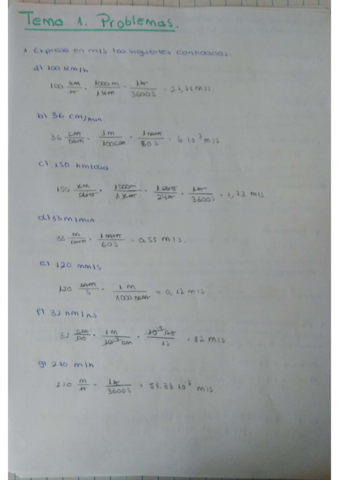 Tema 1. Problemas.
1. Expresa en m/s las siguientes cantidades.
a) 100 km/h
100 km/h · 1000 m/1 km · 1 h/3600 s = 27,77 m/s
b) 36 cm/min
36 cm/min · 1 m/100 cm · 1 min/60 s = 6·10⁻³ m/s
c) 150 km/dia
150 km/dia · 1000 m/1 km · 1 dia/24 h · 1 h/3600 s = 1,73 m/s
d) 33 m/min
33 m/min · 1 min/60 s = 0,55 m/s.
e) 120 mm/s
120 mm/s · 1 m/1000 mm = 0,12 m/s
f) 32
= 32 m/s
g) 210 m/h
210 m/h · 1 h/3600 s = 58,33·10⁻³ m/s